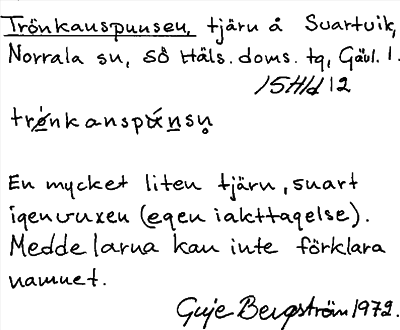 Trönkanspunsen, tjärn å Svartvik,
Norrala sn, SÖ Häls. doms. tg, Gävl. l.
15H1d12
En mycket liten tjärn, svart
igenvuxen (egen iakttagelse).
Meddelarna kan inte förklara
namnet.
Guje Bergström 1972.